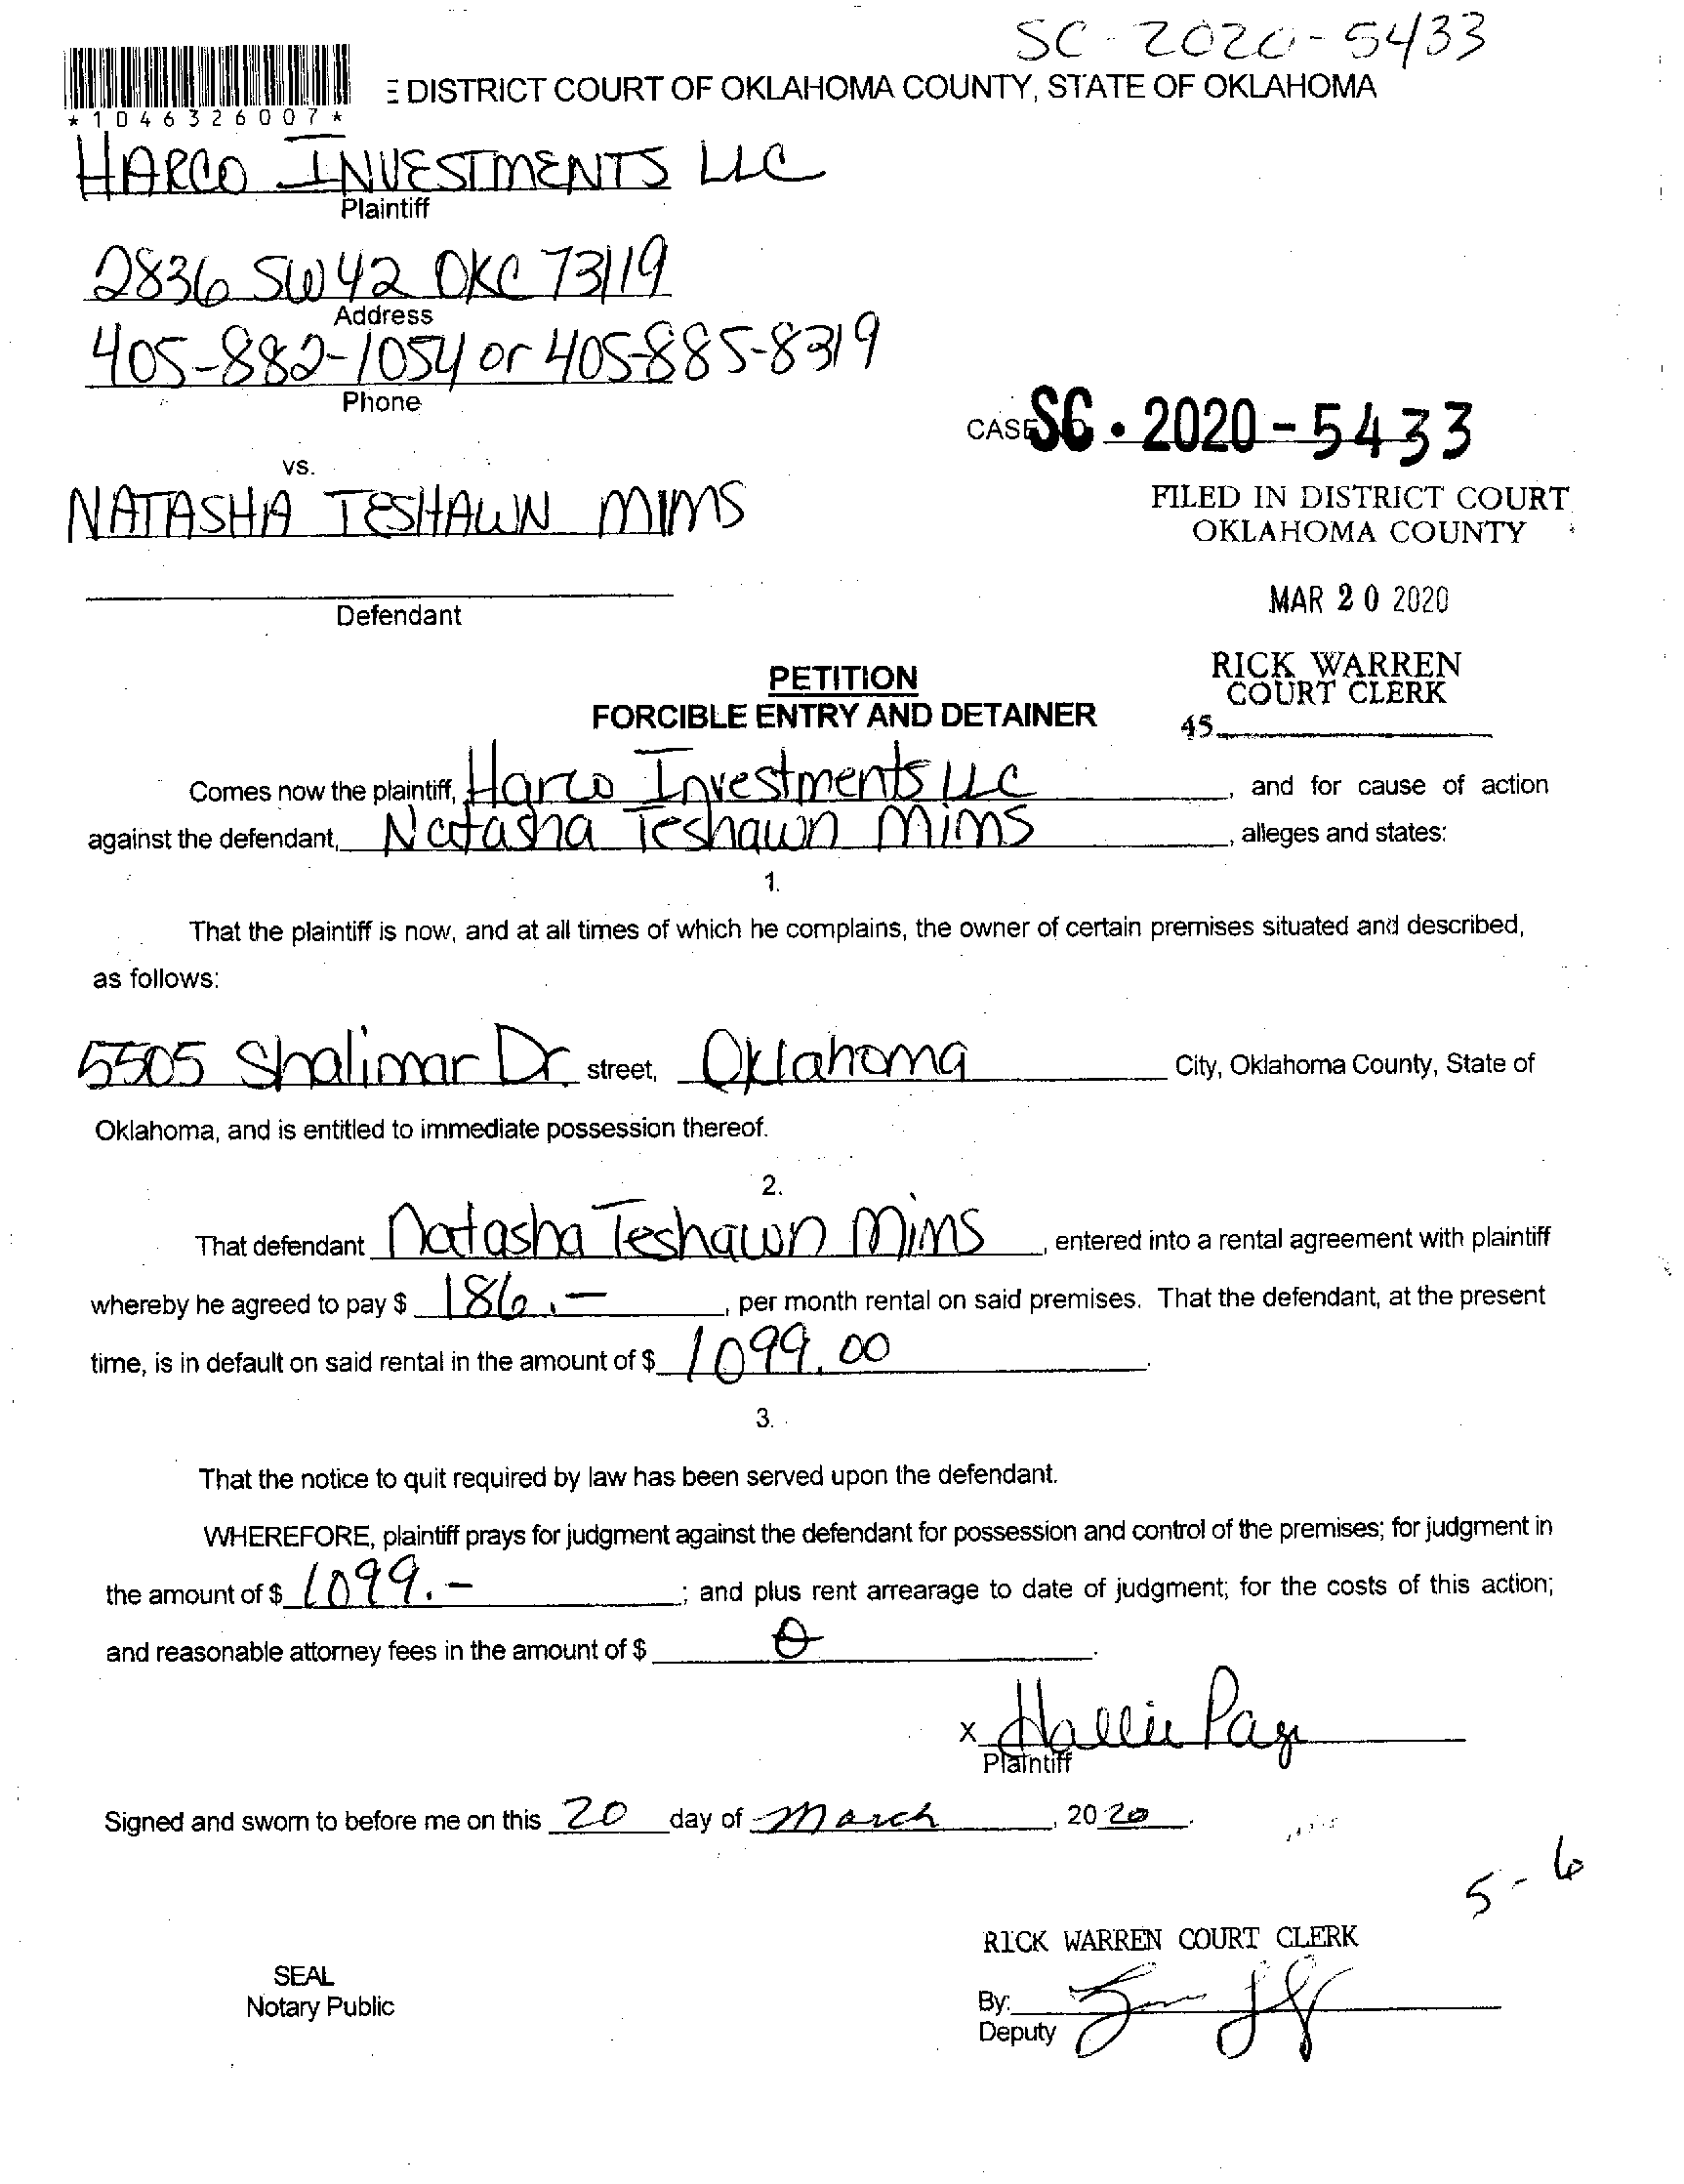 SC-2020-5433
E DISTRICT COURT OF OKLAHOMA COUNTY, STATE OF OKLAHOMA
*1046326007*
HARCO INVESTMENTS LLC
Plaintiff
2836 SW 42 OKC 73119
Address
405-882-1054 or 405-885-8319
Phone
CASE SC • 2020 - 5433
vs.
NATASHA TESHAWN MIMS
FILED IN DISTRICT COURT
OKLAHOMA COUNTY
Defendant
MAR 20 2020
PETITION
FORCIBLE ENTRY AND DETAINER
RICK WARREN
COURT CLERK
45
Comes now the plaintiff, Harco Investments LLC, and for cause of action
against the defendant, Natasha Teshawn Mims, alleges and states:
1.
That the plaintiff is now, and at all times of which he complains, the owner of certain premises situated and described,
as follows:
5505 Shalimar Dr. street, Oklahoma City, Oklahoma County, State of
Oklahoma, and is entitled to immediate possession thereof.
2.
That defendant Natasha Teshawn Mims, entered into a rental agreement with plaintiff
whereby he agreed to pay $ 186.-, per month rental on said premises. That the defendant, at the present
time, is in default on said rental in the amount of $ 1099.00.
3.
That the notice to quit required by law has been served upon the defendant.
WHEREFORE, plaintiff prays for judgment against the defendant for possession and control of the premises; for judgment in
the amount of $ 1099.-; and plus rent arrearage to date of judgment; for the costs of this action;
and reasonable attorney fees in the amount of $ 0.
x Hallie Page
Plaintiff
Signed and sworn to before me on this 20 day of March, 2020.
5-6
RICK WARREN COURT CLERK
SEAL
Notary Public
By:
Deputy